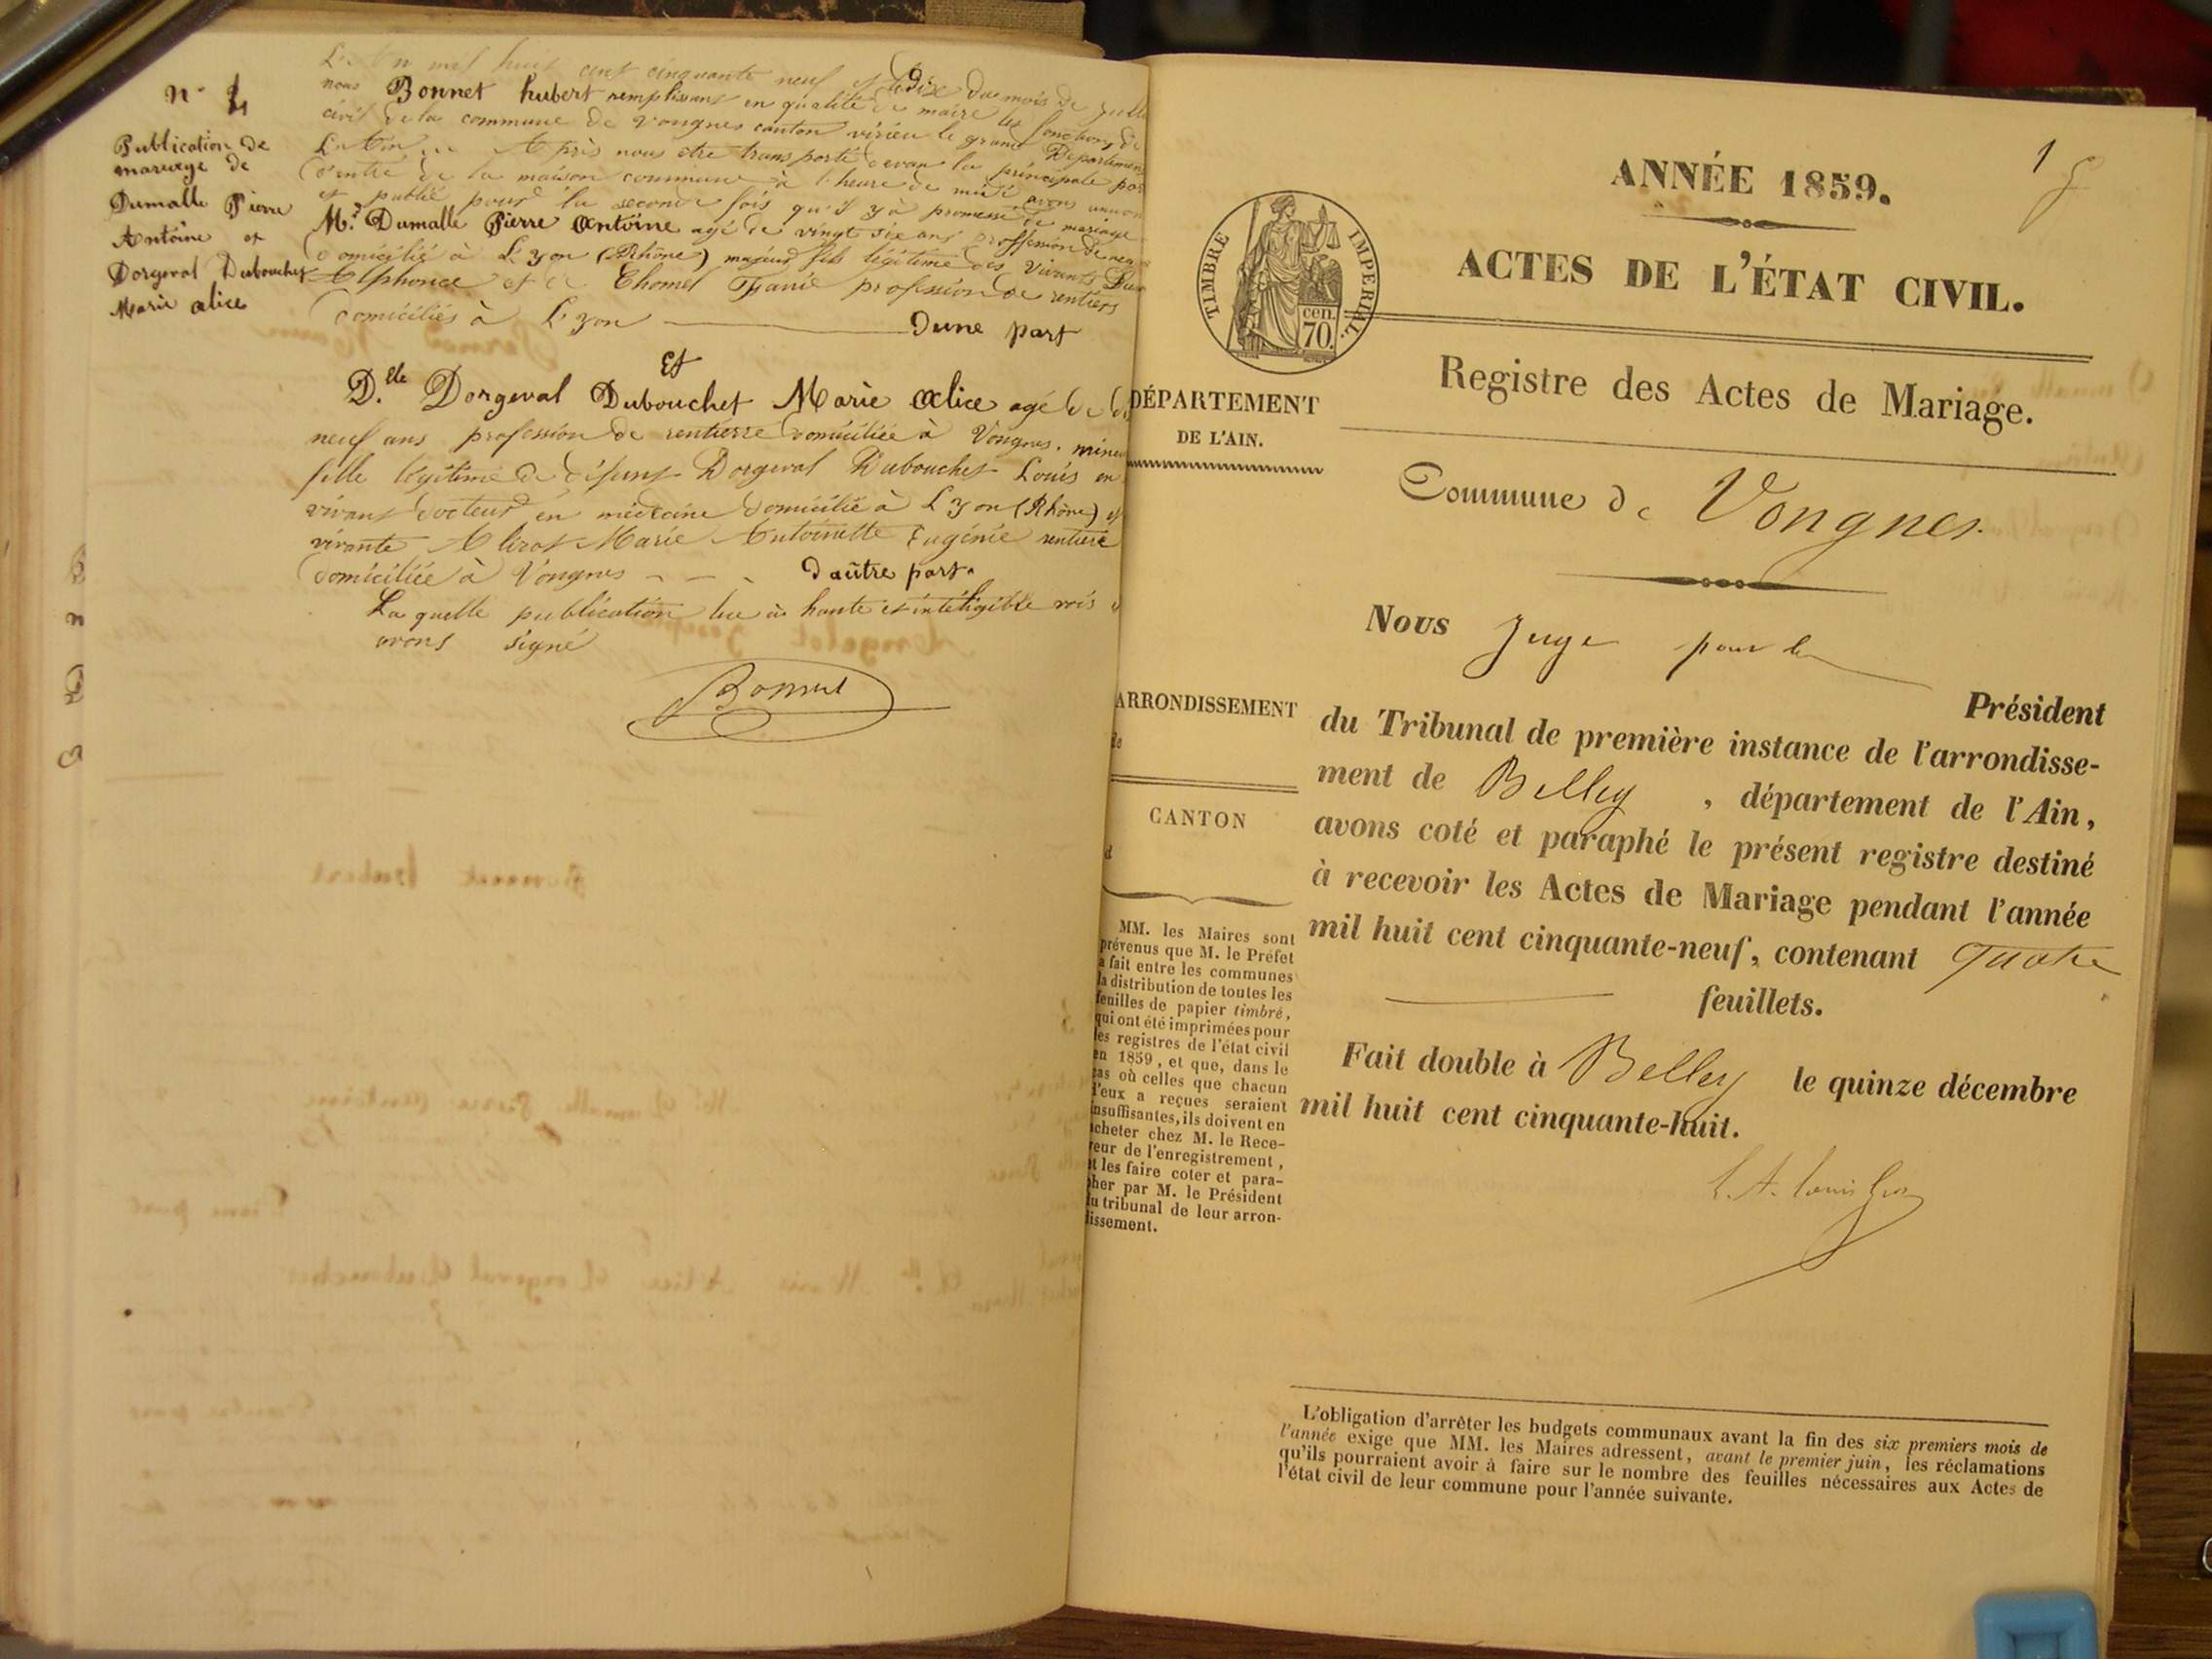 n° 4
Publication de
mariage de
Dumalle Pierre
Antoine et
Dorgeval Dubouchet
Marie alice
L'An mil huit cent cinquante neuf et le dix du mois de
nous Bonnet hubert remplissant en qualité de maire les fonctions de
civil de la commune de Vongnes canton virieu le grand Departement
L'Ain Après nous etre transporté devant la principale
d'entré de la maison commune à l'heure de midi avons
et publié pour la seconde fois qu'il y à promesse de mariage
Mr. Dumalle Pierre Antoine agé de vingt six ans proffession de
domicilié à Lyon (Rhône) majeur fils légitime des vivants
Alphonse et de Chomel profession de rentiers
domiciliés à Lyon dune part
Et
D.lle Dorgeval Dubouchet Marie Alice agé de
neuf ans profession de rentierre domiciliée à Vongnes.
fille légitime de défunt Dorgeval Dubouchet Louis en
vivant docteur en médecine domicilié à Lyon (Rhône) et
vivante Marie Antoinette Eugénie rentière
domiciliée à Vongnes - - - dautre part.
La quelle publication lue à haute et intéligible vois
avons signé
Bonnet
1
ANNÉE 1859.
TIMBRE IMPERIAL.
cen.
70.
ACTES DE L'ÉTAT CIVIL.
Registre des Actes de Mariage.
DÉPARTEMENT
DE L'AIN.
Commune de Vongnes.
Nous Juge pour le
Président
ARRONDISSEMENT
de
CANTON
d
du Tribunal de première instance de l'arrondisse-
ment de Belley , département de l'Ain,
avons coté et paraphé le présent registre destiné
à recevoir les Actes de Mariage pendant l'année
mil huit cent cinquante-neuf, contenant quatre
feuillets.
Fait double à Belley le quinze décembre
mil huit cent cinquante-huit.
MM. les Maires sont
prévenus que M. le Préfet
a fait entre les communes
la distribution de toutes les
feuilles de papier timbré,
qui ont été imprimées pour
les registres de l'état civil
en 1859, et que, dans le
cas où celles que chacun
d'eux a reçues seraient
insuffisantes, ils doivent en
acheter chez M. le Rece-
veur de l'enregistrement,
et les faire coter et para-
pher par M. le Président
du tribunal de leur arron-
dissement.
L'obligation d'arrêter les budgets communaux avant la fin des six premiers mois de
l'année exige que MM. les Maires adressent, avant le premier juin, les réclamations
qu'ils pourraient avoir à faire sur le nombre des feuilles nécessaires aux Actes de
l'état civil de leur commune pour l'année suivante.